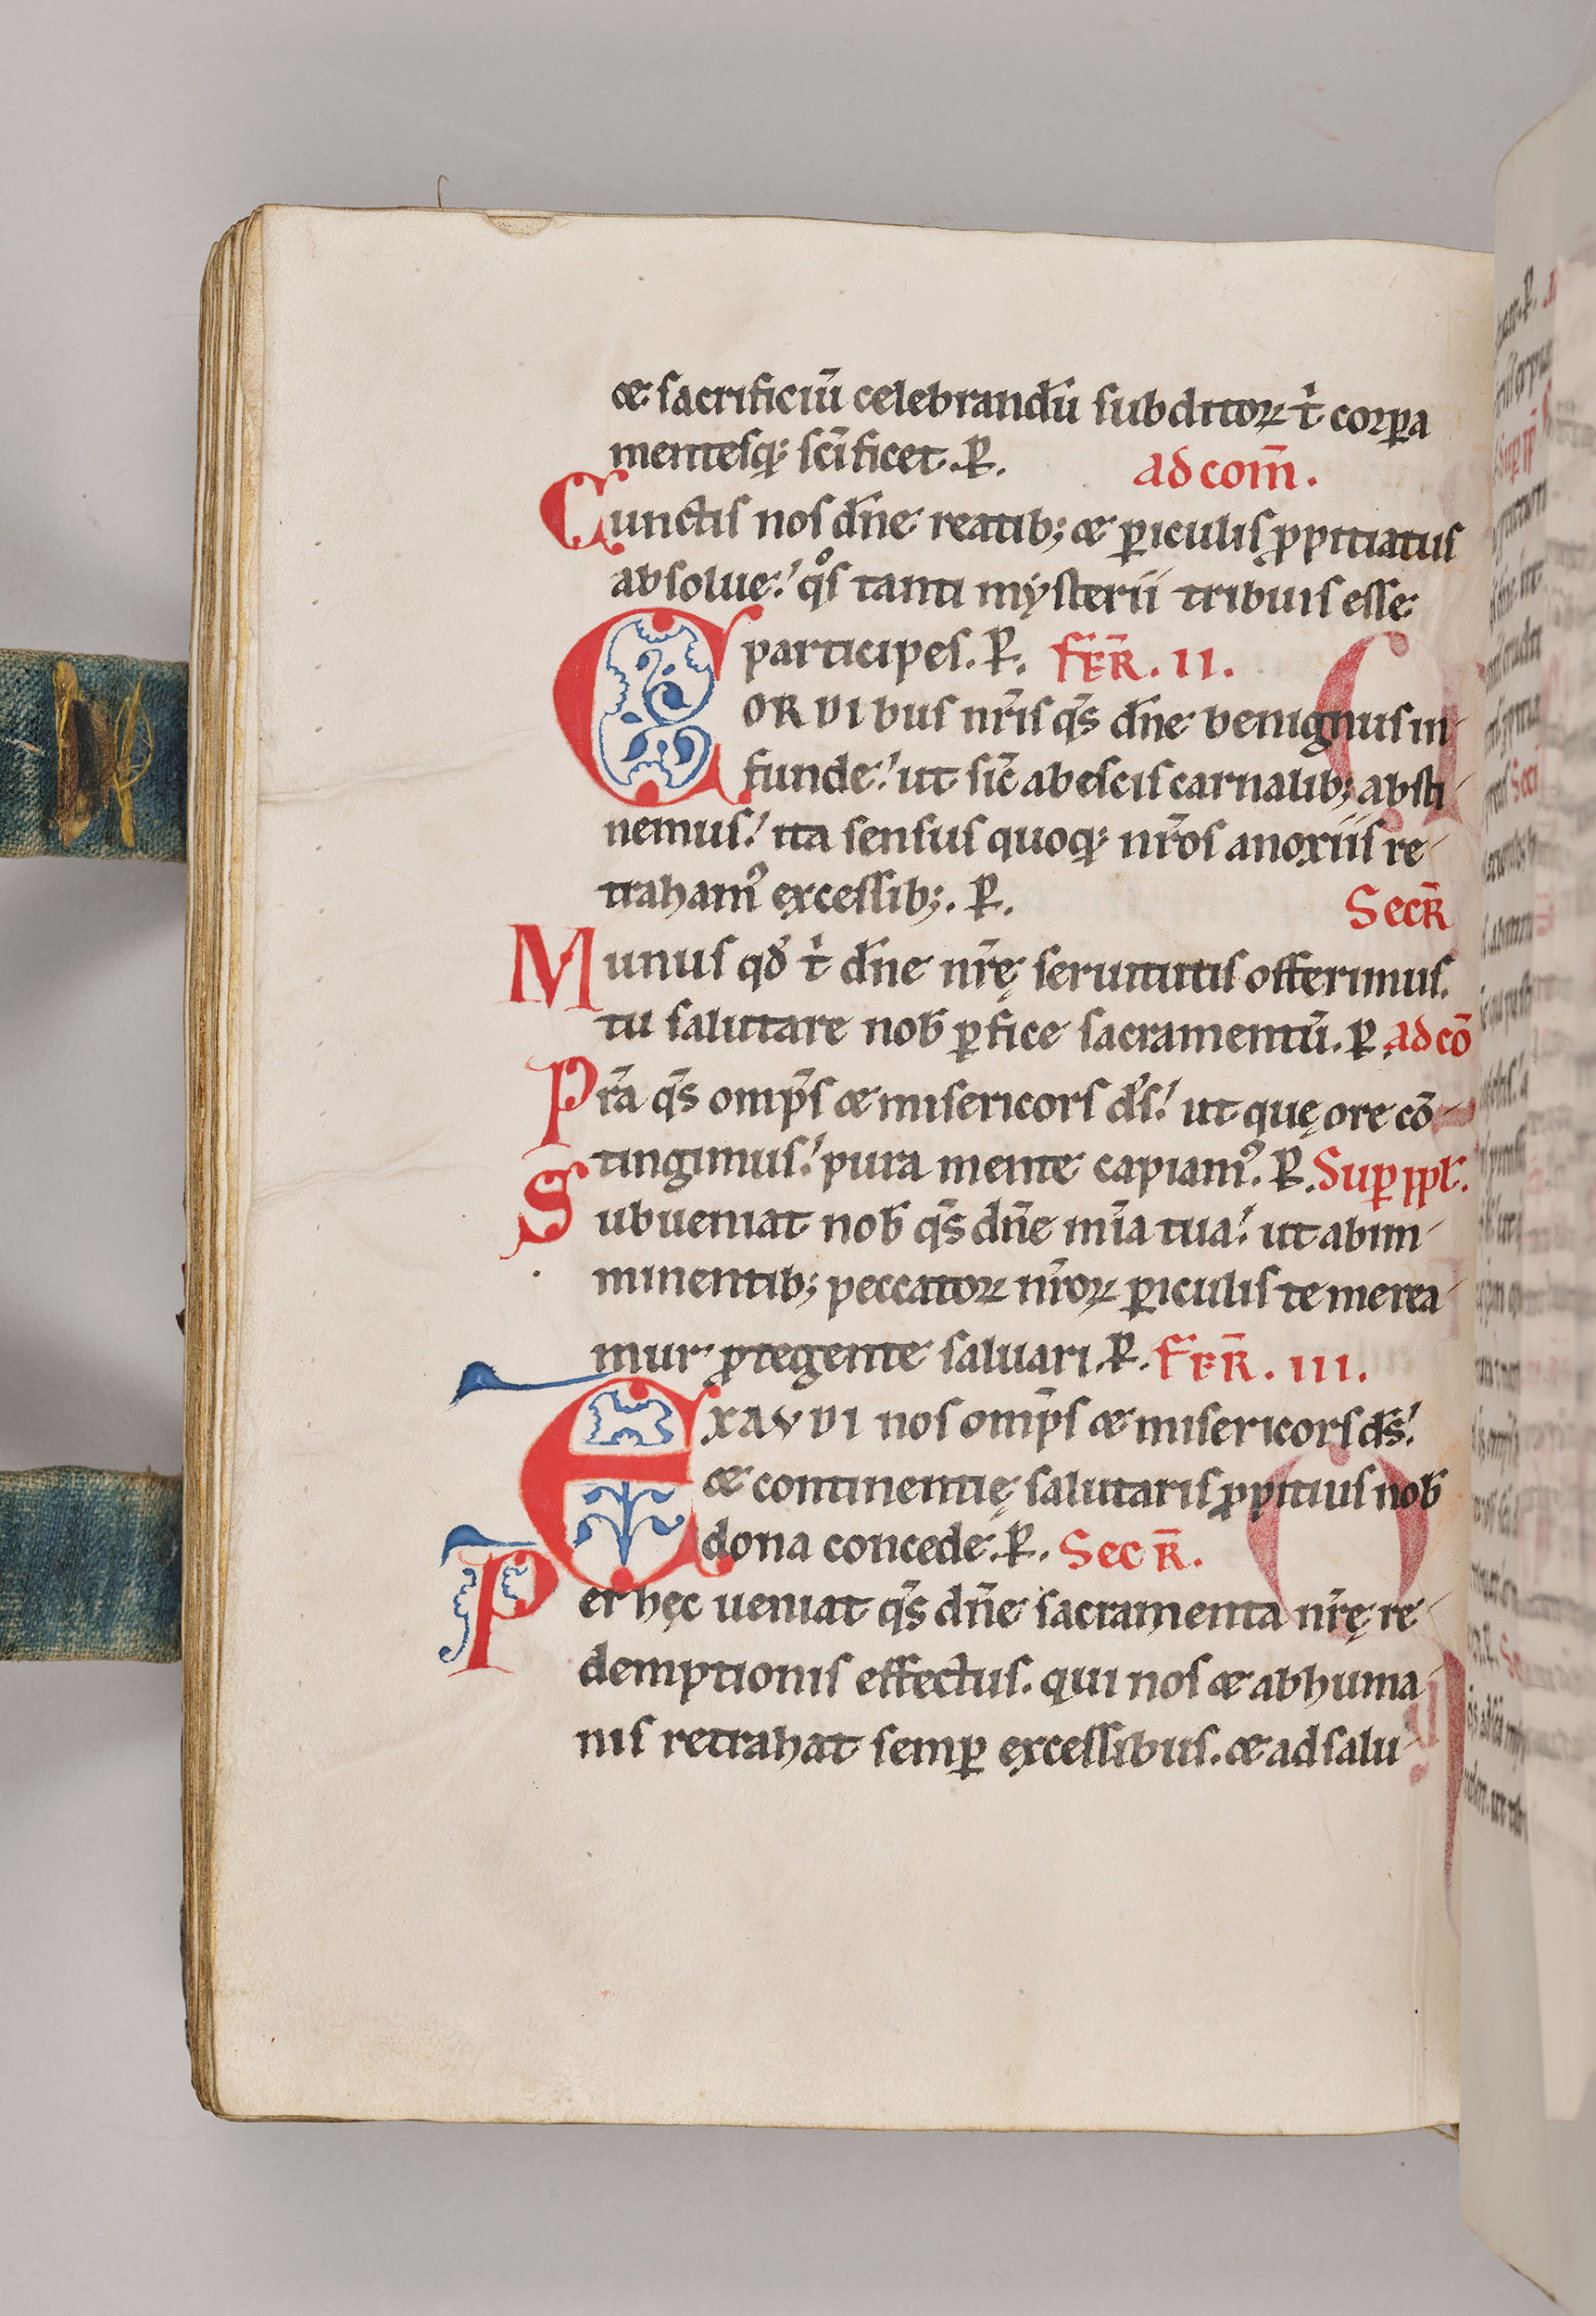 & sacrificiū celebrandū subditoꝝ t̓ corꝑa
mentesq; sc̄ificet. ꝶ. ad com̄.
Cunctis nos dn̄e reatib; & ꝑiculis ꝓpitiatus
absolue. qͦs tanti mẏsterii tribuis esse
participes. ꝶ. FER̄. II.
CORDIbus nr̄is qs̄ dn̄e benignus in-
funde. ut sic̄ ab escis carnalib; absti-
nemus. ita sensus quoq; nr̄os a noxiis re-
traham᷒ excessib;. ꝶ. Secr̄
Munus qđ t̓ dn̄e nr̄ę seruitutis offerimus.
tu salutare nob̄ ꝑfice sacramentū. ꝶ ad cō
Pr̄a qs̄ omp̄s & misericors ds̄. ut quę ore cō-
tingimus. pura mente capiam᷒. ꝶ. Suꝑ ppl̄.
Subueniat nob̄ qs̄ dn̄e mīa tua. ut ab im-
minentib; peccatoꝝ nr̄oꝝ ꝑiculis te merea-
mur ꝓtegente saluari. ꝶ. FER̄. III.
EXAVDI nos omp̄s & misericors ds̄.
& continentię salutaris ꝓpitius nob̄
dona concede. ꝶ. Secr̄.
Per hęc ueniat qs̄ dn̄e sacramenta nr̄ę re-
demptionis effectus. qui nos & ab huma-
nis retrahat semꝑ excessibus. & ad salu-